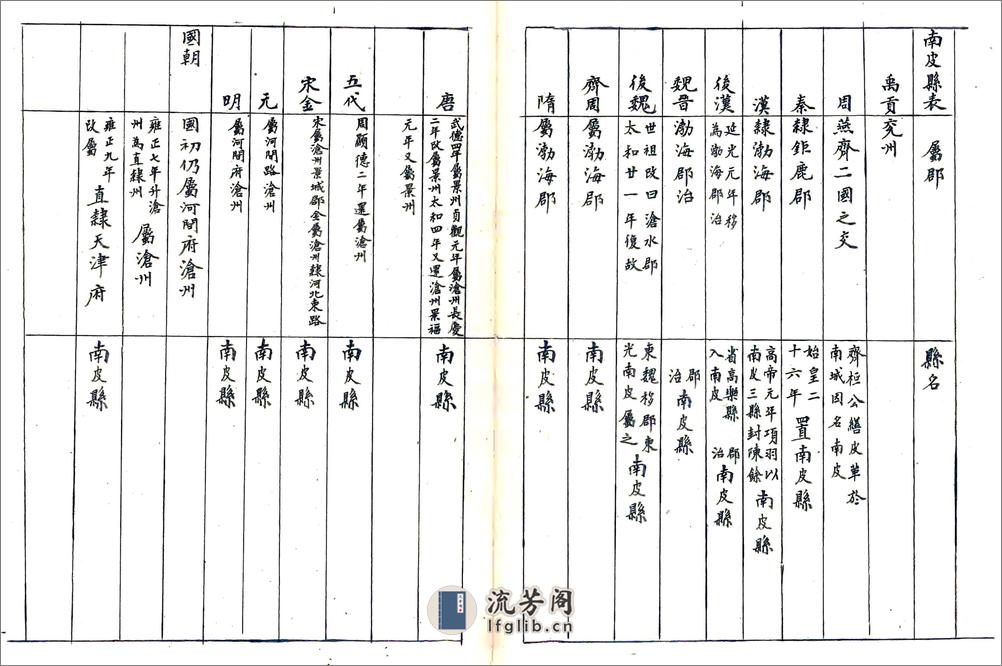 南皮縣表 屬郡 縣名
禹貢兗州
周 燕齊二國之交 齊桓公繕皮革於南城因名南皮
秦 隸鉅鹿郡 始皇二十六年 置南皮縣
漢 隸渤海郡 高帝元年項羽以南皮三縣封陳餘 南皮縣
後漢 延光元年移為渤海郡治 省高樂縣入南皮 郡治南皮縣
魏晉 渤海郡治 郡治南皮縣
後魏 世祖改曰滄水郡太和廿一年復故 東魏移郡東光南皮屬之 南皮縣
齊周 屬渤海郡 南皮縣
隋 屬渤海郡 南皮縣
唐 武德四年屬景州貞觀元年屬滄州長慶二年改屬景州太和四年又還滄州景福 南皮縣
元年又屬景州
五代 周顯德二年還屬滄州 南皮縣
宋金 宋屬滄州景城郡金屬滄州隸河北東路 南皮縣
元 屬河間路滄州 南皮縣
明 屬河間府滄州 南皮縣
國朝 國初仍屬河間府滄州
雍正七年升滄州為直隸州 屬滄州
雍正九年改屬 直隸天津府 南皮縣
流芳阁
lfglib.cn